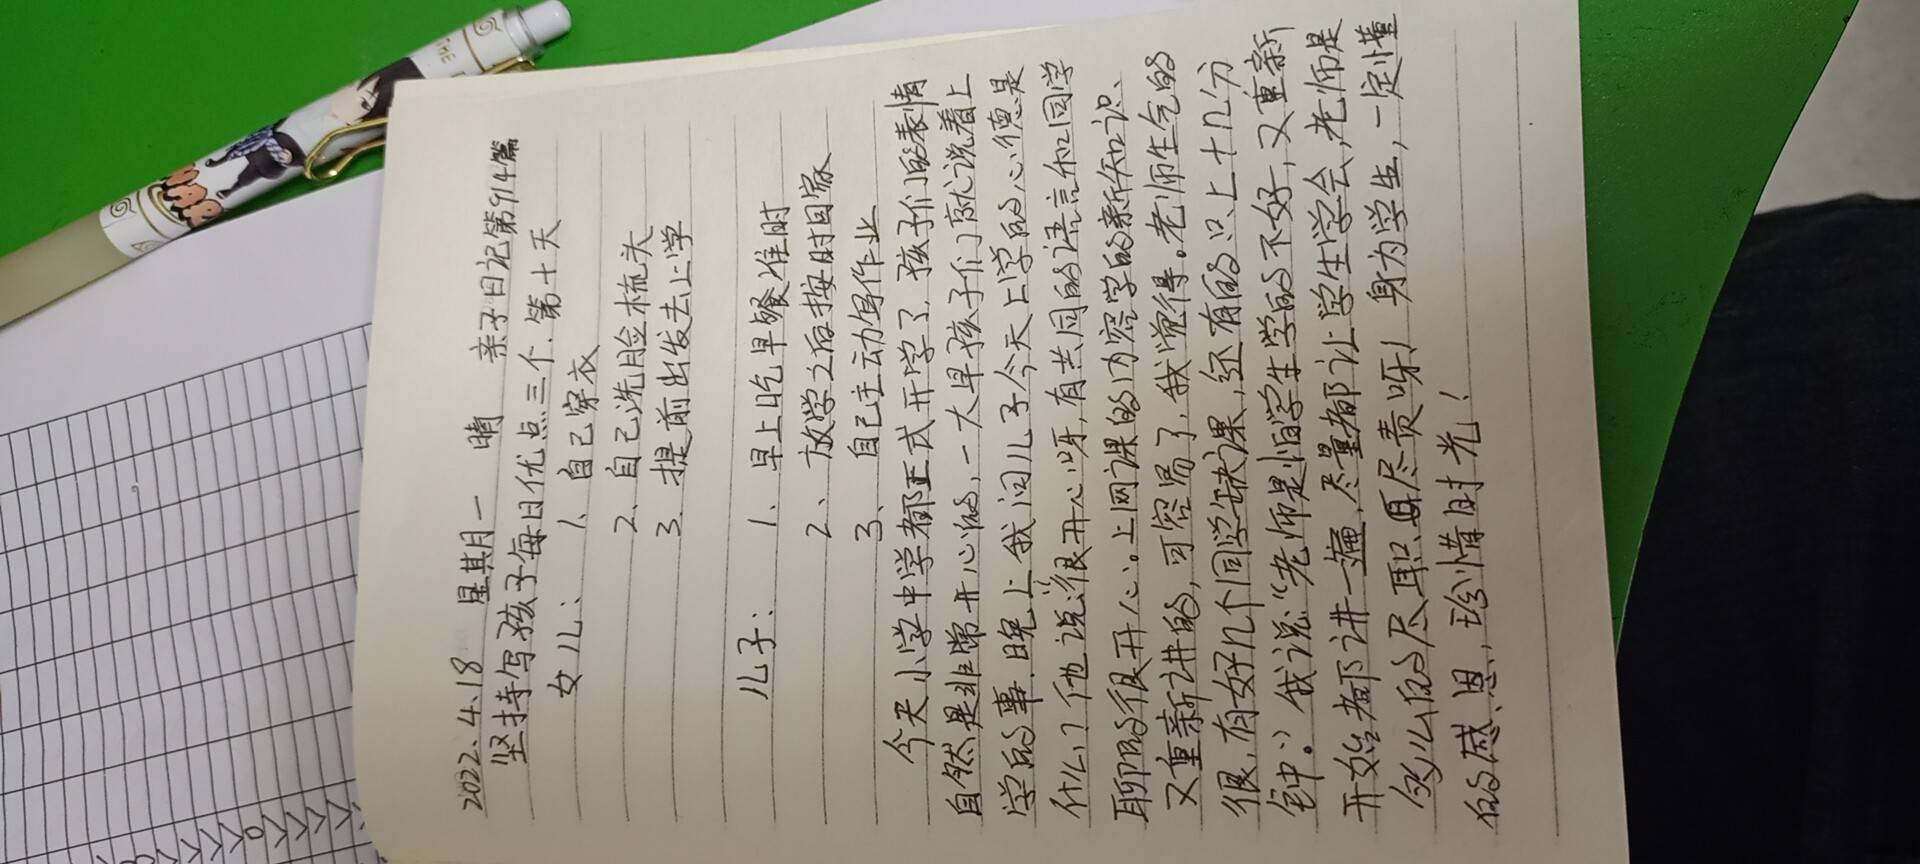 2022.4.18 星期一 晴 亲子日记第914篇
坚持写孩子每日优点三个.第十天
女儿: 1、自己穿衣
2、自己洗脸梳头
3、提前出发去上学
儿子: 1、早上吃早餐准时
2、放学之后按时回家
3、自己主动写作业
今天小学中学都正式开学了,孩子们的表情
自然是非常开心的,一大早孩子们就说着上
学的事、晚上我问儿子今天上学的心德是
什么?他说:"很开心呀,有共同的语言和同学
聊的很开心。上网课的内容学的新知识、
又重新讲的,可容易了,我觉得。老师生气的
很,有好几个同学缺课,还有的只上十几分
钟。" 我说:"老师是怕学生学的不好,又重新
开始都讲一遍、尽量都让学生学会,老师是
多么的尽职尽责呀!身为学生,一定懂
的感恩,珍惜时光!
THE